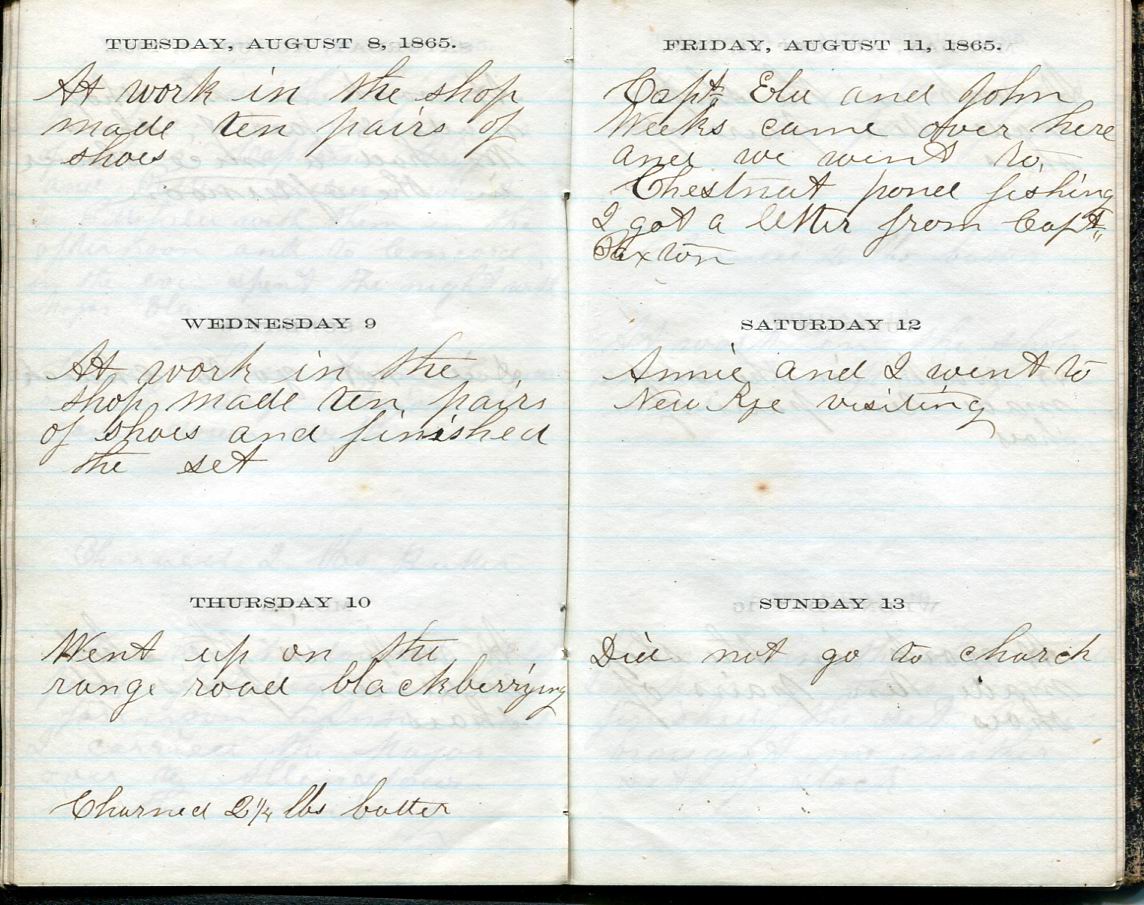 TUESDAY, AUGUST 8, 1865.
At work in the shop
made ten pairs of
shoes
WEDNESDAY 9
At work in the
shop made ten pairs
of shoes and finished
the set
THURSDAY 10
Went up on the
range road blackberrying
Churned 2¼ lbs butter
FRIDAY, AUGUST 11, 1865.
Capt. and John
Weeks came over here
and we went to
Chestnut pond fishing
I got a letter from Capt.
SATURDAY 12
Annie and I went to
New Rye visiting
SUNDAY 13
Did not go to church